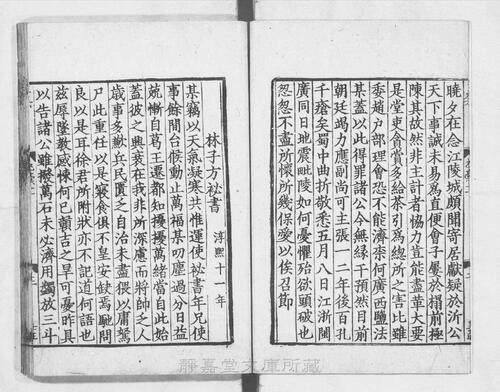 曉夕在念江陵城頗閒寄居獻疑於沂公
天下事誠未易爲直便會子屢於榻前極
陳其故然非主計者協力豈能盡革大要
是堂吏貪賞多給茶引爲總所之害比雖
委趙戸部理會恐不能濟柰何廣西鹽法
某蓋以此得罪諸公今無緣干預然目前
朝廷竭力應副尚可主張一二年後百孔
千瘡矣蜀中曲折敬悉五月八日江浙閩
廣同日地震毗陵如何憂懼殆欲頭破也
怱怱不盡所懷所幾保愛以俟召節
林子方祕書 淳熙十一年
某竊以天氣凝寒共惟運使祕書年兄使
事餘閒台候動止萬福某叨塵過分日益
兢慚自葛王還都知擾擾萬緒當自此始
蓋彼之興衰在我非所深慮而將帥之人
歲事多歉兵民匱乏自治未盡猥以庸駑
尸此重任以是寢食俱不皇安妓焉馳問
良以是耳徐君所附狀亦不記道何語也
兹辱墜教感悚何已贑吉之旱可憂昨具
以告諸公雖撥萬石未必濟用蠲放三斗
靜嘉堂文庫所藏